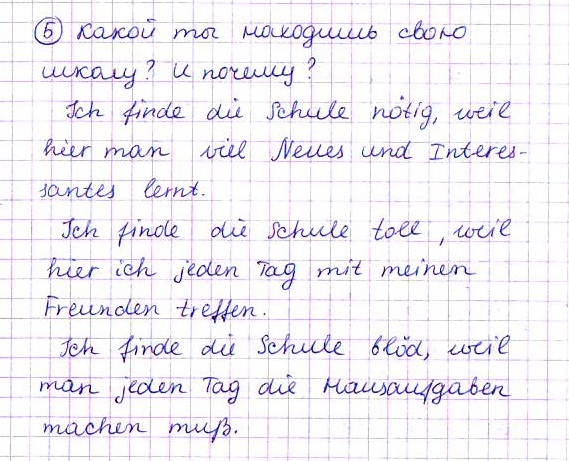 ⑤ Какой ты находишь свою
школу? И почему?
Ich finde die Schule nötig, weil
hier man viel Neues und Interes-
santes lernt.
Ich finde die Schule toll, weil
hier ich jeden Tag mit meinen
Freunden treffen.
Ich finde die Schule blöd, weil
man jeden Tag die Hausaufgaben
machen muß.